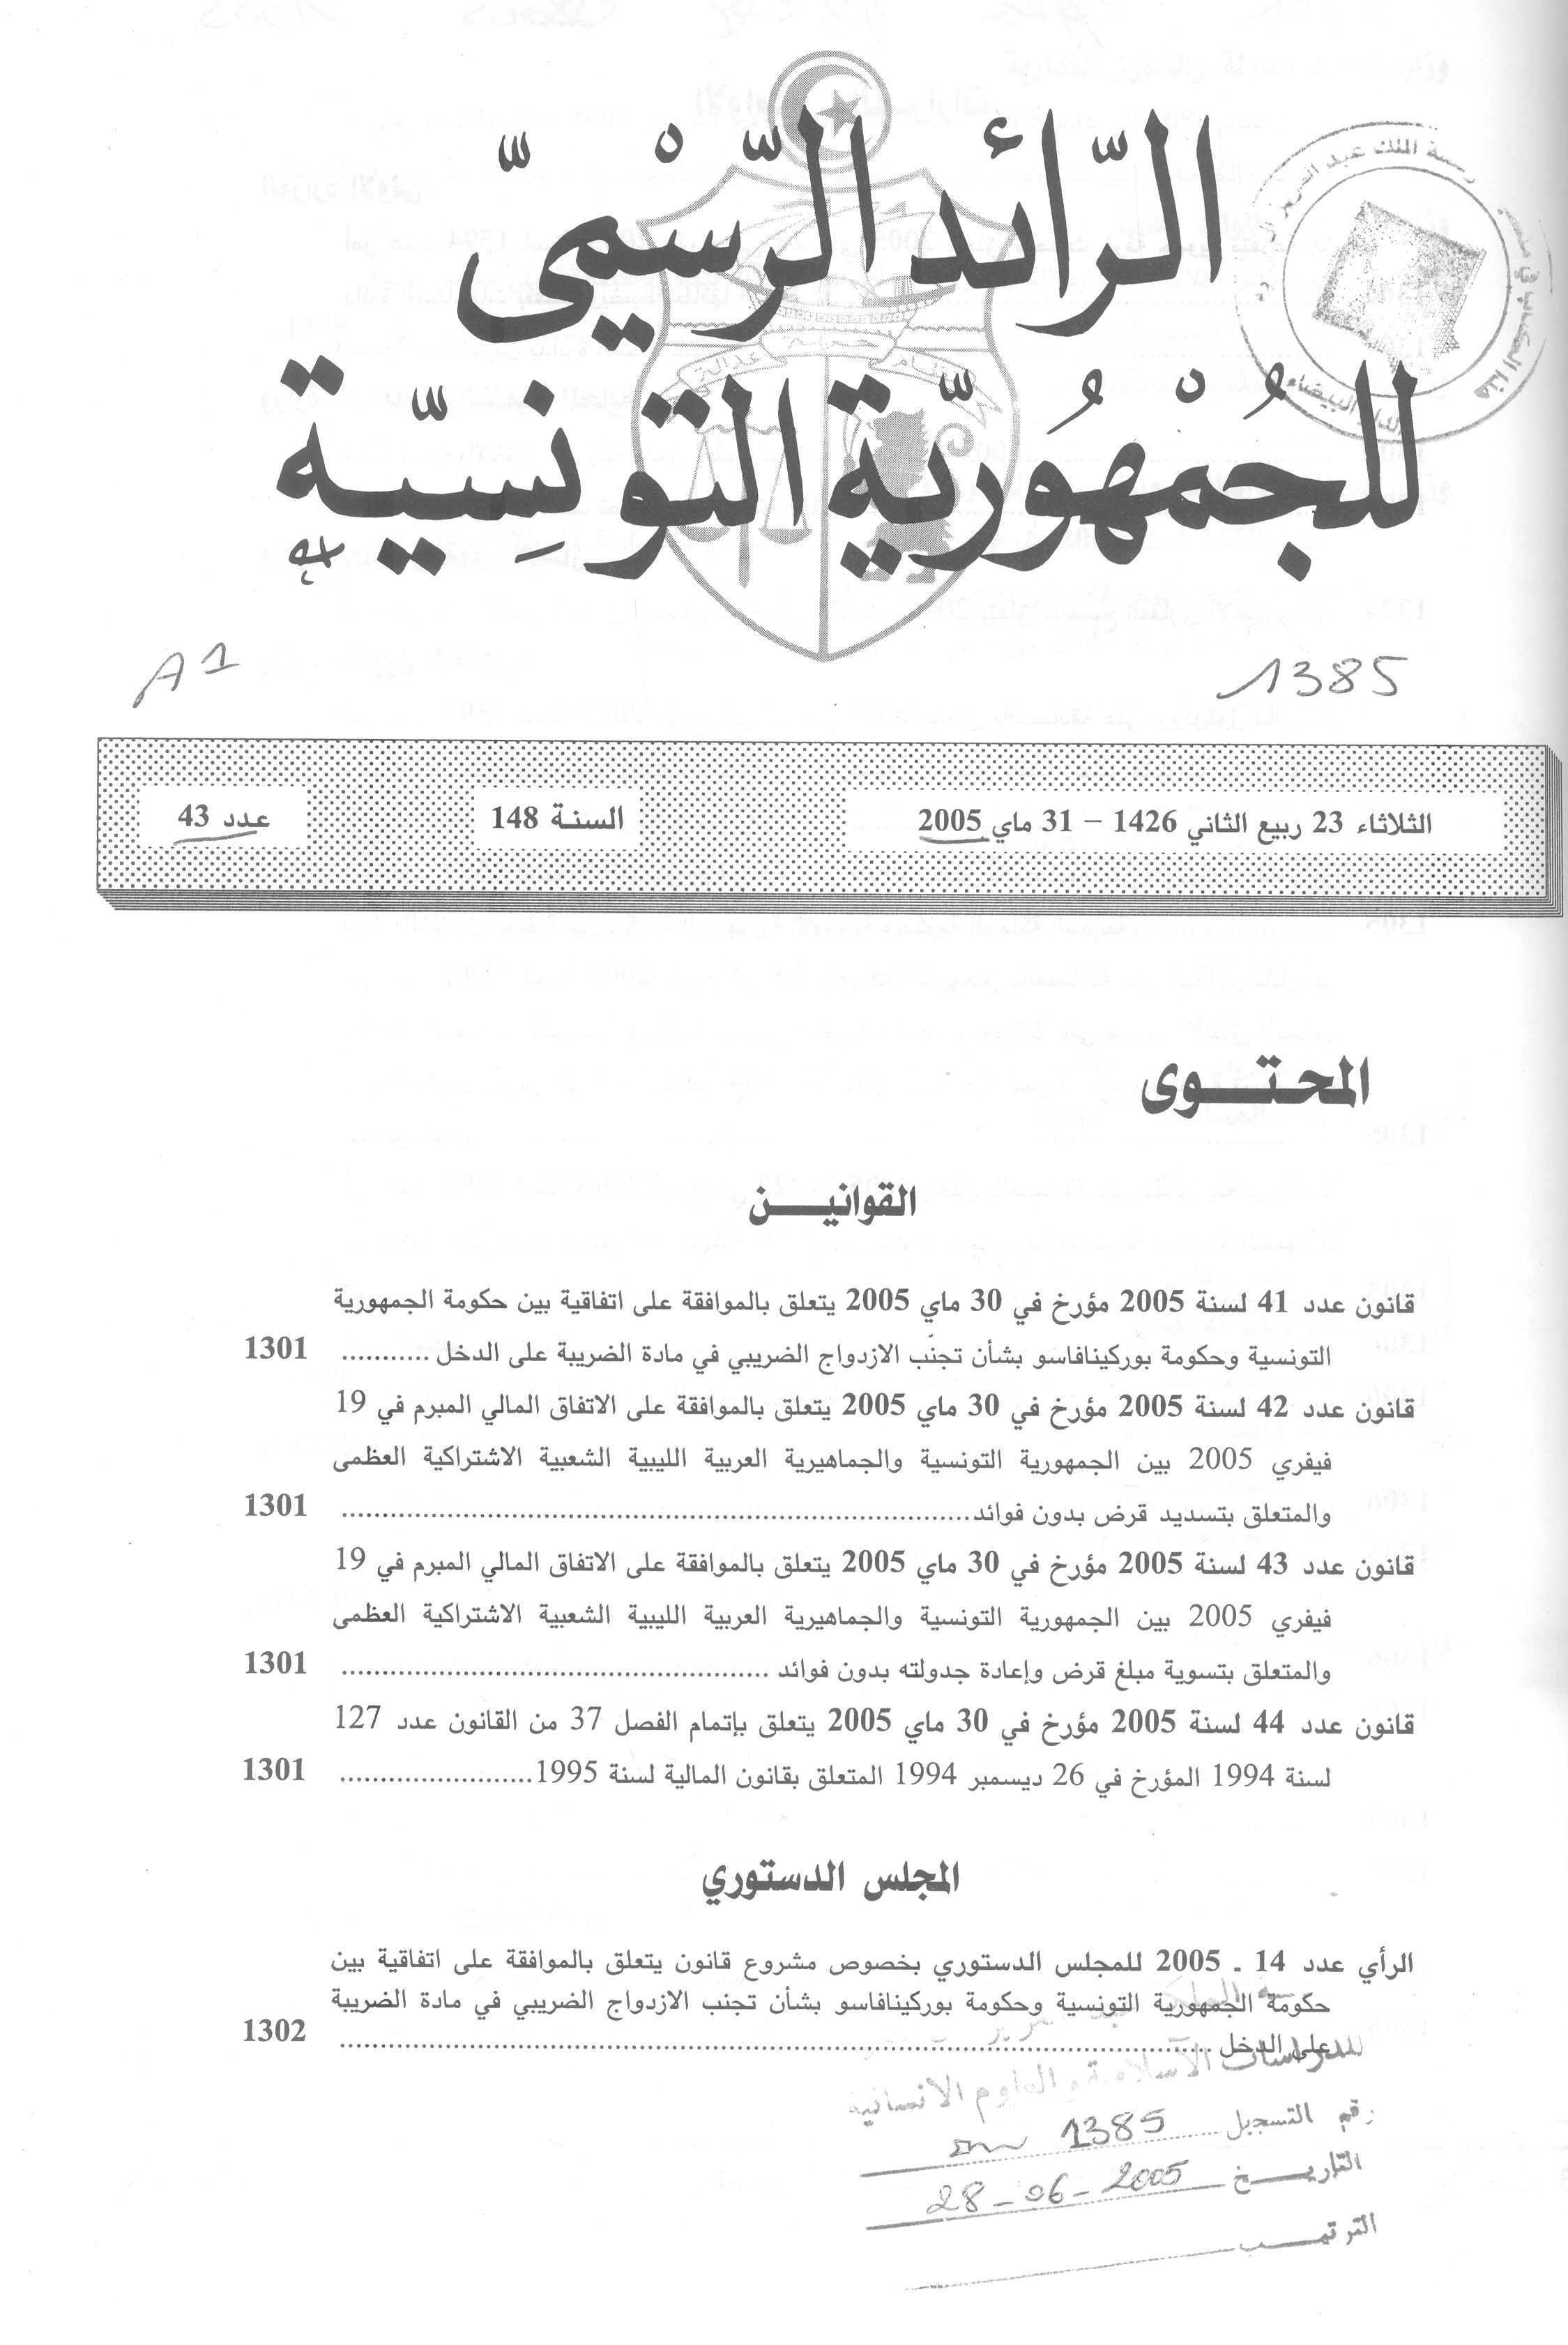 الرّائد الرّسْميّ
للجُمْهُوريّة التّونِسيّة
نظام حرية عدالة
A1
1385
الثلاثاء 23 ربيع الثاني 1426 – 31 ماي 2005
السنة 148
عدد 43
المحتوى
القوانين
قانون عدد 41 لسنة 2005 مؤرخ في 30 ماي 2005 يتعلق بالموافقة على اتفاقية بين حكومة الجمهورية
التونسية وحكومة بوركينافاسو بشأن تجنّب الازدواج الضريبي في مادة الضريبة على الدخل ........... 1301
قانون عدد 42 لسنة 2005 مؤرخ في 30 ماي 2005 يتعلق بالموافقة على الاتفاق المالي المبرم في 19
فيفري 2005 بين الجمهورية التونسية والجماهيرية العربية الليبية الشعبية الاشتراكية العظمى
والمتعلق بتسديد قرض بدون فوائد........................................ 1301
قانون عدد 43 لسنة 2005 مؤرخ في 30 ماي 2005 يتعلق بالموافقة على الاتفاق المالي المبرم في 19
فيفري 2005 بين الجمهورية التونسية والجماهيرية العربية الليبية الشعبية الاشتراكية العظمى
والمتعلق بتسوية مبلغ قرض وإعادة جدولته بدون فوائد ........................................ 1301
قانون عدد 44 لسنة 2005 مؤرخ في 30 ماي 2005 يتعلق بإتمام الفصل 37 من القانون عدد 127
لسنة 1994 المؤرخ في 26 ديسمبر 1994 المتعلق بقانون المالية لسنة 1995........................ 1301
المجلس الدستوري
الرأي عدد 14 ـ 2005 للمجلس الدستوري بخصوص مشروع قانون يتعلق بالموافقة على اتفاقية بين
حكومة الجمهورية التونسية وحكومة بوركينافاسو بشأن تجنب الازدواج الضريبي في مادة الضريبة
على الدخل ........................................ 1302
للدراسات الاسلامية والعلوم الانسانية
رقم التسجيل 1385
التاريخ 28-06-2005
الترتيب